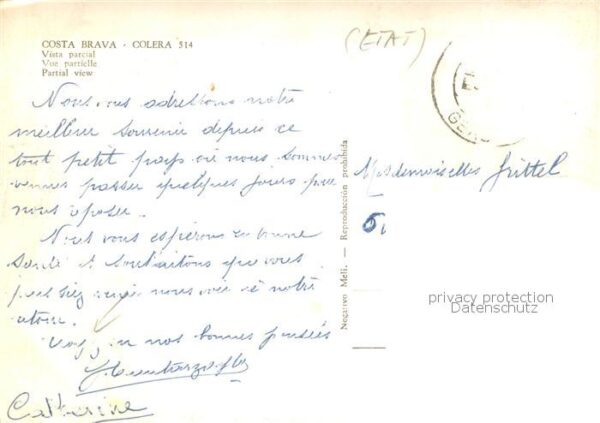 COSTA BRAVA · COLERA 514
Vista parcial
Vue partielle
Partial view
(ETAT)
Nous vous adressons notre
meilleur souvenir depuis ce
tout petit pays où nous sommes
venus passer quelques jours pour
nous
Nous vous espérons en bonne
santé et souhaitons que vous
puissiez nous voir à notre
retour.
en nos bonnes pensées
Catherine
Negativo Meli. — Reproducción prohibida
Mesdemoiselles
privacy protection
Datenschutz